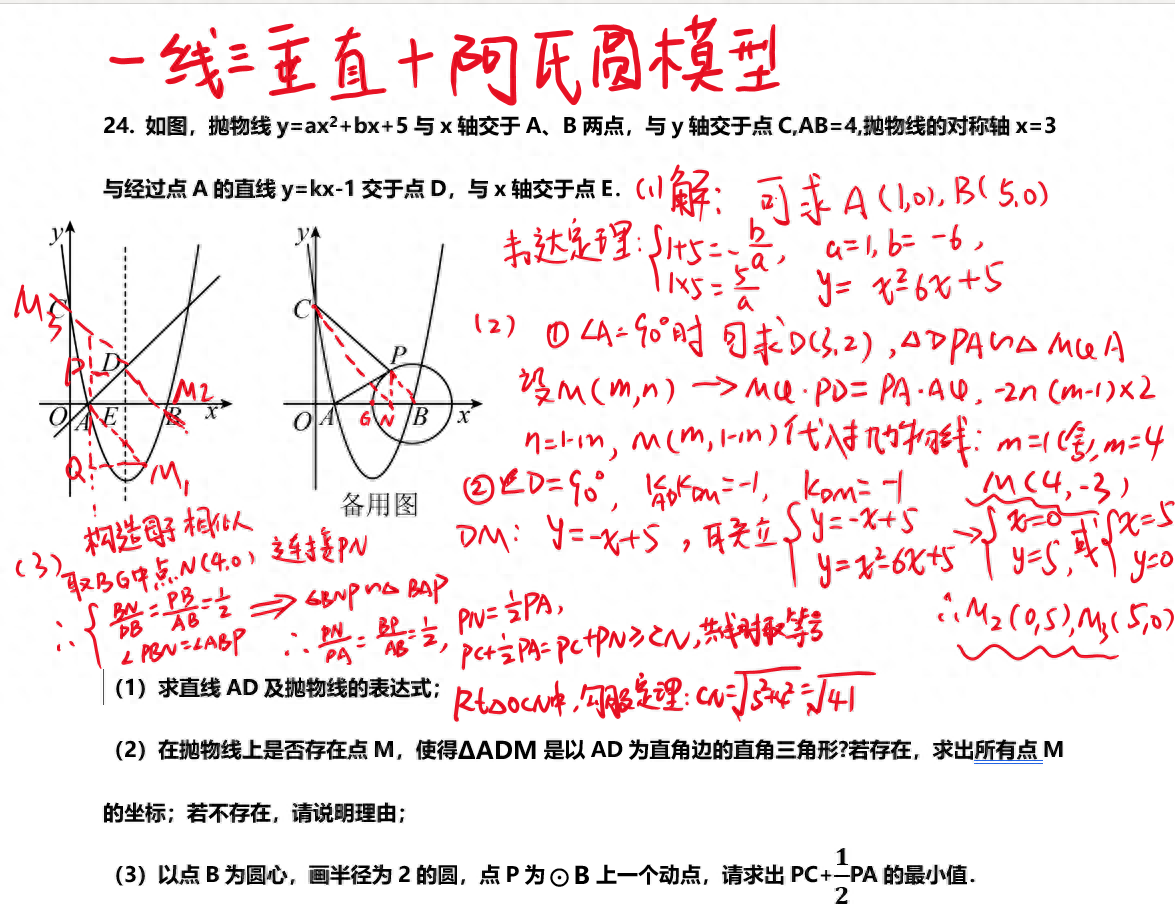 一线三垂直+阿氏圆模型
24. 如图，抛物线 y=ax²+bx+5 与 x 轴交于 A、B 两点，与 y 轴交于点 C,AB=4,抛物线的对称轴 x=3
与经过点 A 的直线 y=kx-1 交于点 D，与 x 轴交于点 E.
(1)解: 可求 A(1,0), B(5,0)
韦达定理: {1+5=-b/a, 1×5=5/a
a=1, b=-6,
y= x²-6x+5
y
C
M3
P
D
M2
O
A
E
B
x
Q
M1
y
C
P
O
A
G
N
B
x
备用图
(2) ①∠A=90°时 可求D(3,2), △DPA∽△MQA
设M(m,n) → MQ·PD=PA·AQ, -2n(m-1)×2
n=1-m, M(m,1-m)代入抛物线: m=1(舍), m=4
M(4,-3)
②∠D=90°, KAD KDM=-1, KDM=-1
DM: y=-x+5, 联立{y=-x+5 y=x²-6x+5 → {x=0 y=5, 或{x=5 y=0
∴M2(0,5), M3(5,0)
构造母子相似
(3) 取BG中点N(4,0) 连接PN
∴{BN/PB=PB/AB=1/2 ∠PBN=∠ABP ⇒ △BNP∽△BAP
∴PN/PA=BP/AB=1/2, PN=1/2PA,
PC+1/2PA=PC+PN≥CN, 共线时取等号
Rt△OCN中, 勾股定理: CN=√5²+4²=√41
（1）求直线 AD 及抛物线的表达式；
（2）在抛物线上是否存在点 M，使得ΔADM 是以 AD 为直角边的直角三角形?若存在，求出所有点 M
的坐标；若不存在，请说明理由；
（3）以点 B 为圆心，画半径为 2 的圆，点 P 为⊙B 上一个动点，请求出 PC+1/2PA 的最小值.